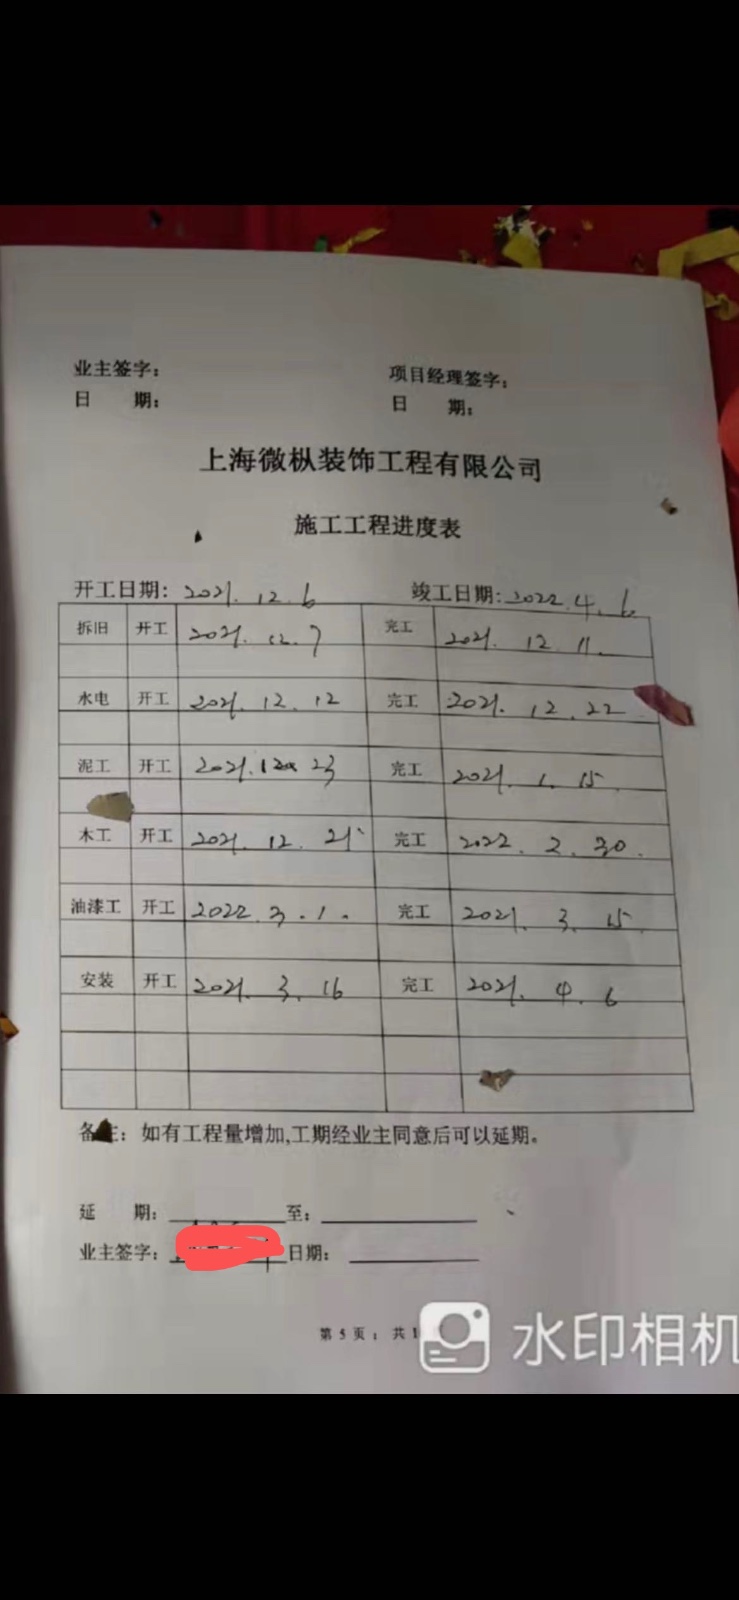 业主签字： 项目经理签字：
日 期： 日 期：
上海微枞装饰工程有限公司
施工工程进度表
开工日期：2021.12.6 竣工日期：2022.4.6
拆旧 开工 2021.12.7 完工 2021.12.11.
水电 开工 2021.12.12 完工 2021.12.22
泥工 开工 2021.12 23 完工 2021.1.15
木工 开工 2021.12.21 完工 2022.2.30.
油漆工 开工 2022.3.1. 完工 2021.3.15
安装 开工 2021.3.16 完工 2021.4.6
备注：如有工程量增加,工期经业主同意后可以延期。
延 期： 至：
业主签字： 日期：
第 5 页； 共 1
水印相机